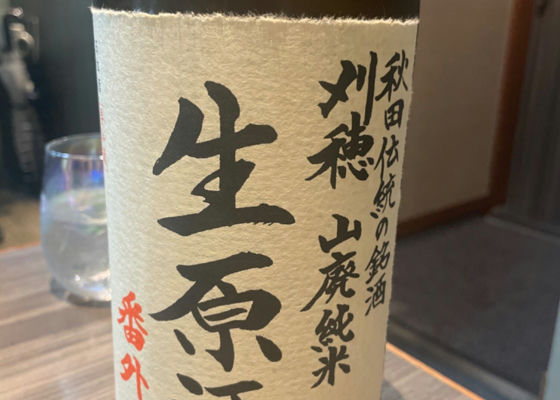 秋田伝統の銘酒
刈穂 山廃純米
生原酒
番外